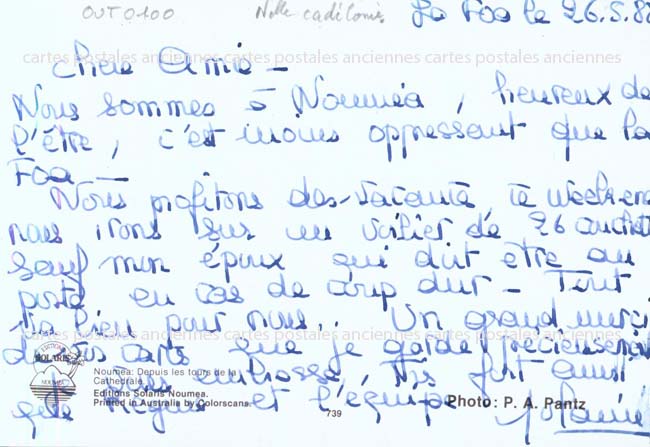 OUT0100 Nlle calédonie
La Foa le 26.5.8
Chère Amie -
Nous sommes à Nouméa, heureux de
l'être, c'est moins oppressant que la
Foa -
Nous profitons des vacances, ce week-en
nous irons sur un voilier de 26 couchet
sauf mon époux qui doit être au
poste en cas de coup dur - Tout
va bien pour nous. Un grand merci
de vos cartes que je garde précieusement
Je vous embrasse, très fort ainsi
que et l'équipe
cartes postales anciennes cartes postales anciennes cartes postales anciennes
cartes postales anciennes cartes postales anciennes cartes postales anciennes
EDITIONS
SOLARIS
NOUMEA
Noumea: Depuis les tours de la
Cathédrale.
Editions Solaris Noumea.
Printed in Australia by Colorscans.
739
Photo: P. A. Pantz